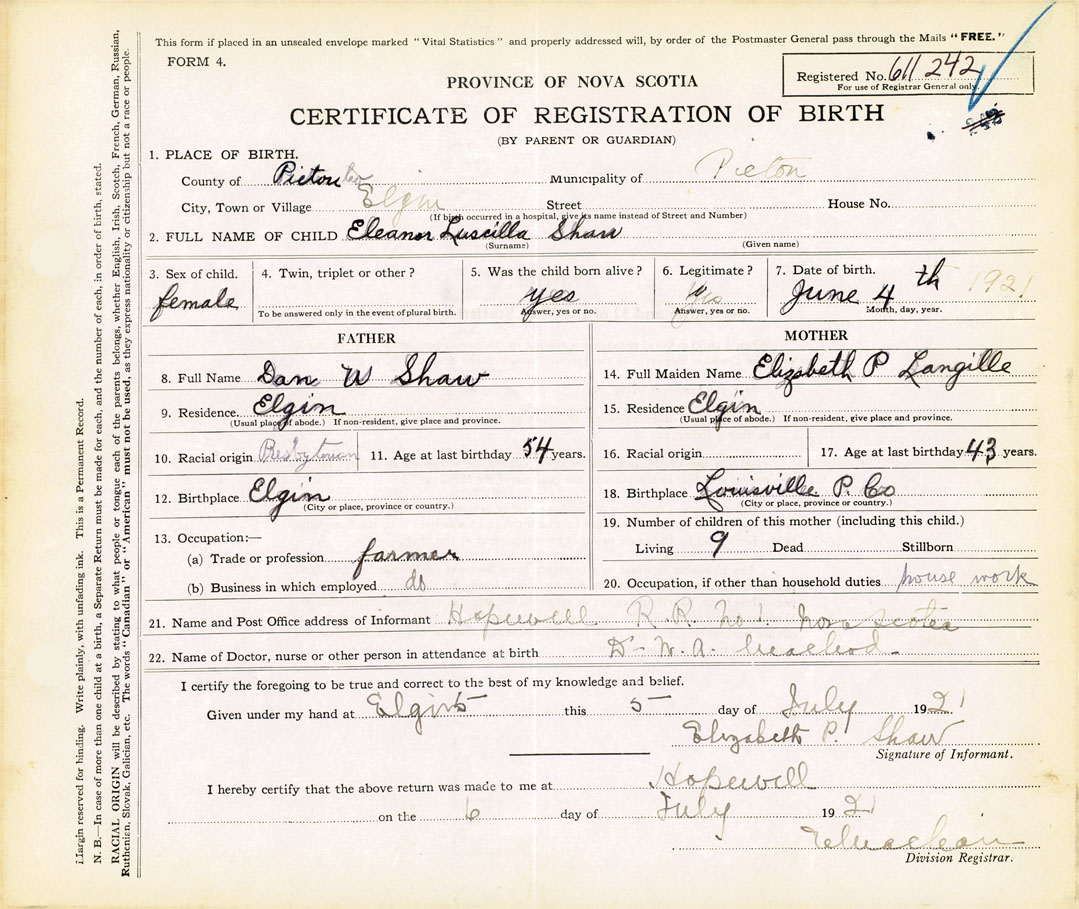 This form if placed in an unsealed envelope marked "Vital Statistics" and properly addressed will, by order of the Postmaster General pass through the Mails "FREE."
FORM 4.
Registered No. 611 242
For use of Registrar General only.
PROVINCE OF NOVA SCOTIA
CERTIFICATE OF REGISTRATION OF BIRTH
(BY PARENT OR GUARDIAN)
1. PLACE OF BIRTH.
County of Pictou Municipality of Picton
City, Town or Village Elgin Street House No.
(If birth occurred in a hospital, give its name instead of Street and Number)
2. FULL NAME OF CHILD Eleanor Luscilla Shaw
(Surname) (Given name)
3. Sex of child. 4. Twin, triplet or other? 5. Was the child born alive? 6. Legitimate? 7. Date of birth.
female yes yes June 4 th 1921
To be answered only in the event of plural birth. Answer, yes or no. Answer, yes or no. Month, day, year.
FATHER
8. Full Name Dan W Shaw
9. Residence. Elgin
(Usual place of abode.) If non-resident, give place and province.
10. Racial origin Presbyterian 11. Age at last birthday 54 years.
12. Birthplace Elgin
(City or place, province or country.)
13. Occupation:—
(a) Trade or profession farmer
(b) Business in which employed do
MOTHER
14. Full Maiden Name Elizabeth P Langille
15. Residence Elgin
(Usual place of abode.) If non-resident, give place and province.
16. Racial origin 17. Age at last birthday 43 years.
18. Birthplace Louisville P. Co
(City or place, province or country.)
19. Number of children of this mother (including this child.)
Living 9 Dead Stillborn
20. Occupation, if other than household duties house work
21. Name and Post Office address of Informant Hopewell R.R. No 1. Nova Scotea
22. Name of Doctor, nurse or other person in attendance at birth Dr W. A. Macleod
I certify the foregoing to be true and correct to the best of my knowledge and belief.
Given under my hand at Elgin this 5 day of July 1921
Elizabeth P. Shaw
Signature of Informant.
I hereby certify that the above return was made to me at Hopewell
on the 6 day of July 1921
Division Registrar.
Margin reserved for binding. Write plainly, with unfading ink. This is a Permanent Record.
N. B.—In case of more than one child at a birth, a Separate Return must be made for each, and the number of each, in order of birth, stated.
RACIAL ORIGIN will be described by stating to what people or tongue each of the parents belongs, whether English, Irish, Scotch, French, German, Russian,
Ruthenian, Slovak, Galician, etc. The words "Canadian" or "American" must not be used, as they express nationality or citizenship but not a race or people.